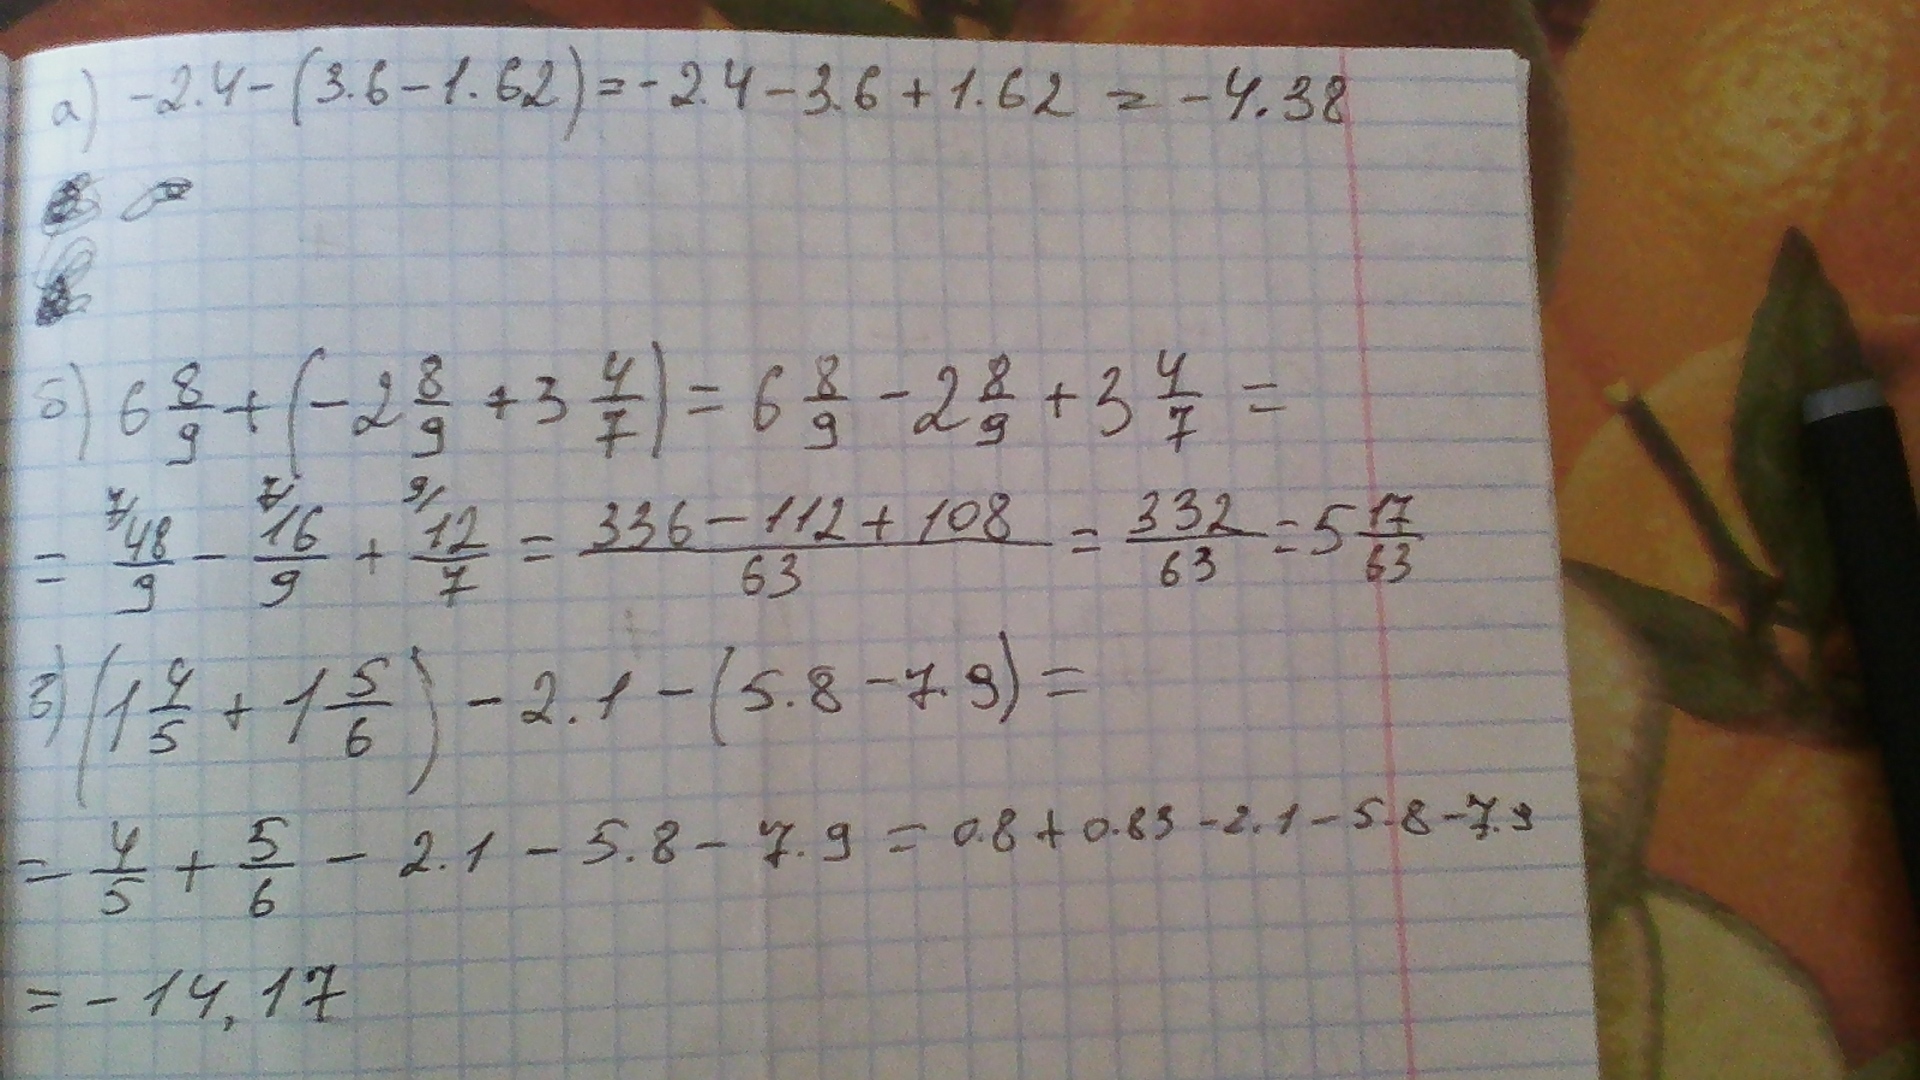 а) -2.4-(3.6-1.62)=-2.4-3.6+1.62 = -4.38
б) 6 8/9 + (-2 8/9 + 3 4/7) = 6 8/9 - 2 8/9 + 3 4/7 =
= 7/ 48/9 - 7/ 16/9 + 9/ 12/7 = (336-112+108)/63 = 332/63 = 5 17/63
в) (1 4/5 + 1 5/6) - 2.1 - (5.8-7.9) =
= 4/5 + 5/6 - 2.1 - 5.8 - 7.9 = 0.8 + 0.83 - 2.1 - 5.8 - 7.9
= -14,17